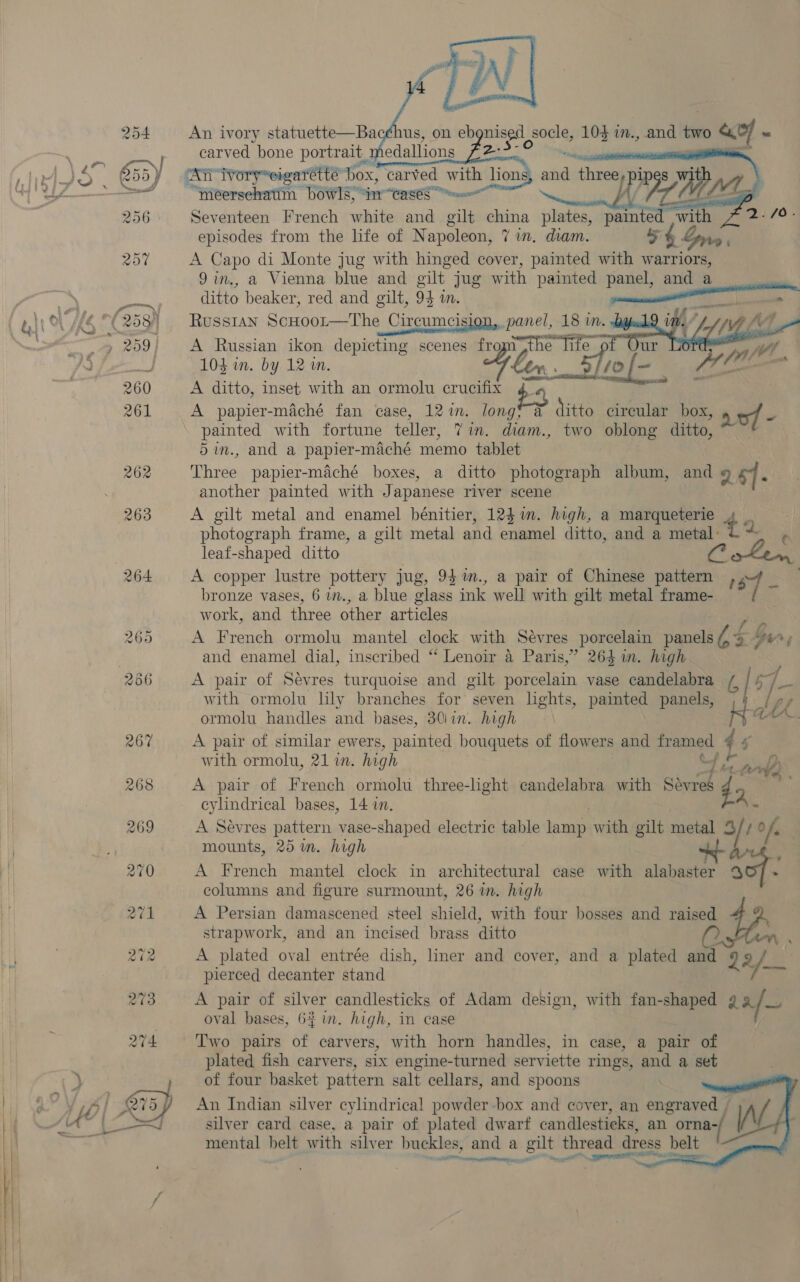 254 An ivory statuette—Bacchus, on ebonised socle, 10½ in., and two
carved bone portrait medallions £2-5-0
255 An ivory cigarette box, carved with lions, and three pipes with
meerschaum bowls, in cases
256 Seventeen French white and gilt china plates, painted with
episodes from the life of Napoleon, 7 in. diam.
257 A Capo di Monte jug with hinged cover, painted with warriors,
9 in., a Vienna blue and gilt jug with painted panel, and a
ditto beaker, red and gilt, 9½ in.
258 RUSSIAN SCHOOL—The Circumcision, panel, 18 in. by 19 in.
259 A Russian ikon depicting scenes from the life of Our Lord,
10½ in. by 12 in. 5/10/-
260 A ditto, inset with an ormolu crucifix
261 A papier-mâché fan case, 12 in. long, a ditto circular box,
painted with fortune teller, 7 in. diam., two oblong ditto,
5 in., and a papier-mâché memo tablet
262 Three papier-mâché boxes, a ditto photograph album, and
another painted with Japanese river scene
263 A gilt metal and enamel bénitier, 12½ in. high, a marqueterie
photograph frame, a gilt metal and enamel ditto, and a metal
leaf-shaped ditto
264 A copper lustre pottery jug, 9½ in., a pair of Chinese pattern
bronze vases, 6 in., a blue glass ink well with gilt metal frame-
work, and three other articles
265 A French ormolu mantel clock with Sèvres porcelain panels
and enamel dial, inscribed “ Lenoir à Paris,” 26½ in. high
266 A pair of Sèvres turquoise and gilt porcelain vase candelabra
with ormolu lily branches for seven lights, painted panels,
ormolu handles and bases, 30 in. high
267 A pair of similar ewers, painted bouquets of flowers and framed
with ormolu, 21 in. high
268 A pair of French ormolu three-light candelabra with Sèvres
cylindrical bases, 14 in.
269 A Sèvres pattern vase-shaped electric table lamp with gilt metal
mounts, 25 in. high
270 A French mantel clock in architectural case with alabaster 30/-
columns and figure surmount, 26 in. high
271 A Persian damascened steel shield, with four bosses and raised
strapwork, and an incised brass ditto
272 A plated oval entrée dish, liner and cover, and a plated and 22/-
pierced decanter stand
273 A pair of silver candlesticks of Adam design, with fan-shaped 22/-
oval bases, 6¾ in. high, in case
274 Two pairs of carvers, with horn handles, in case, a pair of
plated fish carvers, six engine-turned serviette rings, and a set
of four basket pattern salt cellars, and spoons
275 An Indian silver cylindrical powder box and cover, an engraved
silver card case, a pair of plated dwarf candlesticks, an orna-
mental belt with silver buckles, and a gilt thread dress belt